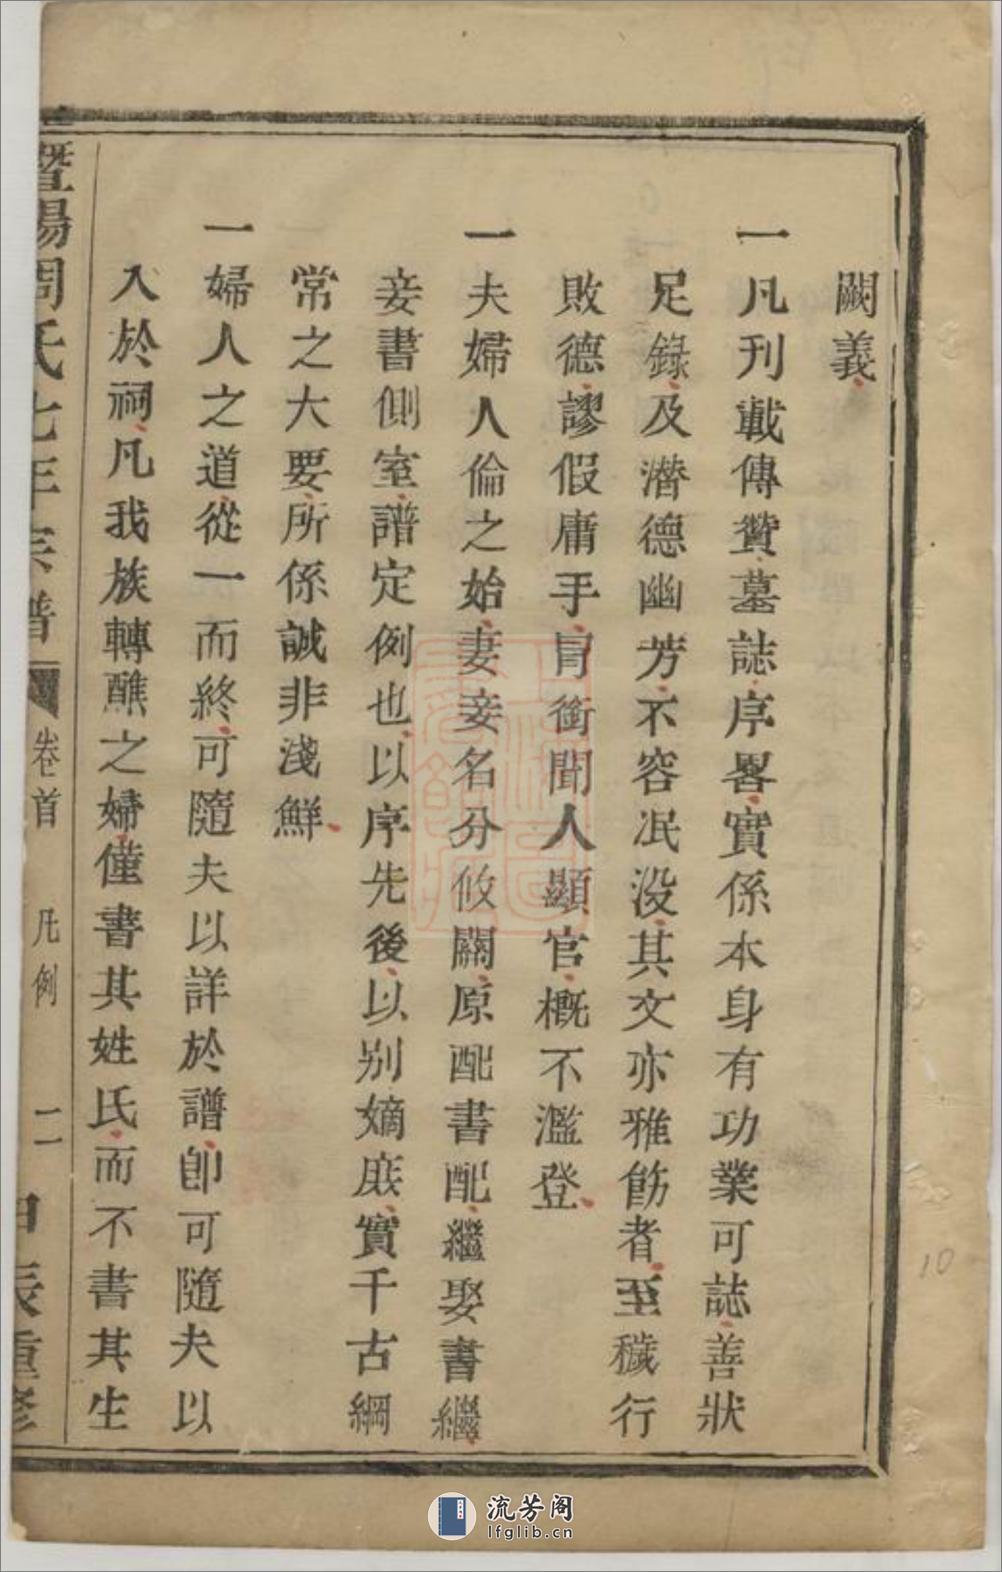 闕義
一凡刊載傳贊墓誌序畧實係本身有功業可誌善狀
足錄及潛德幽芳不容泯没其文亦雅飭者至穢行
敗德謬假庸手冐銜聞人顯官概不濫登
一夫婦人倫之始妻妾名分攸關原配書配繼娶書繼
妾書側室譜定例也以序先後以别嫡庻實千古綱
常之大要所係誠非淺鮮
一婦人之道從一而終可隨夫以詳於譜卽可隨夫以
入於祠凡我族轉醮之婦僅書其姓氏而不書其生
暨陽周氏宗譜 卷首 凡例 二 甲辰重修
10
流芳阁
lfglib.cn